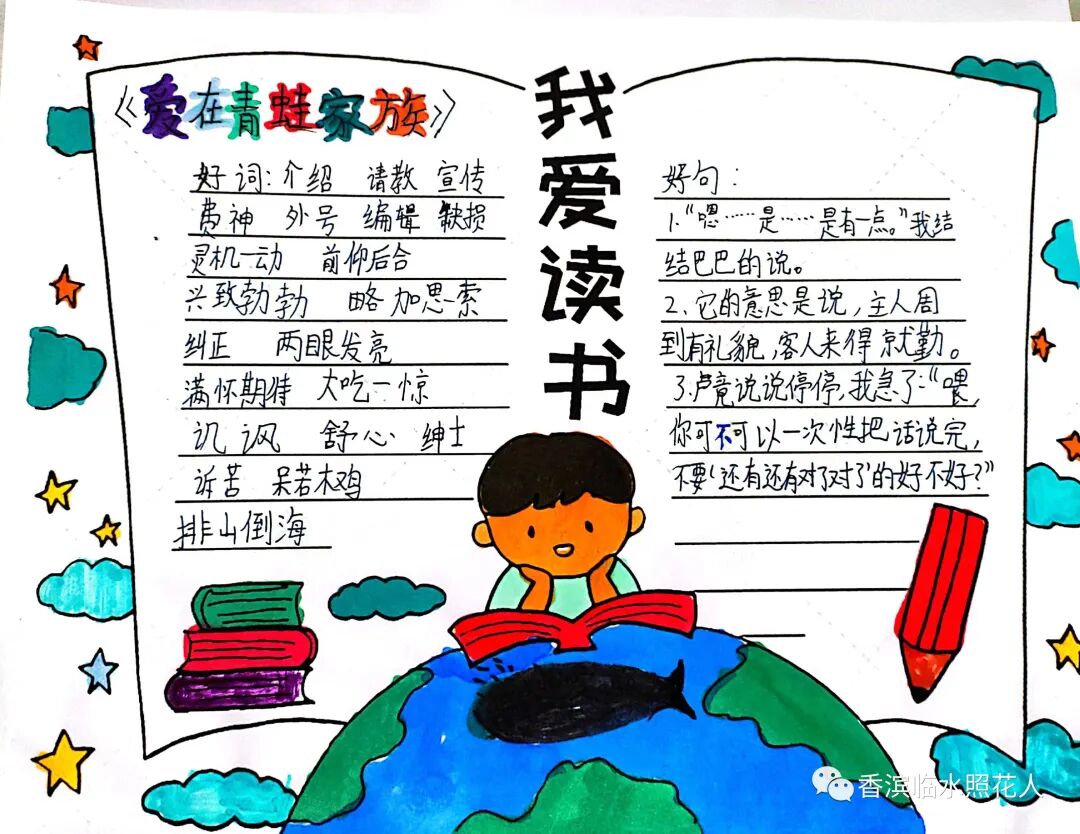 《爱在青蛙家族》
好词：介绍 请教 宣传
费神 外号 编辑 缺损
灵机一动 前仰后合
兴致勃勃 略加思索
纠正 两眼发亮
满怀期待 大吃一惊
讥讽 舒心 绅士
诉苦 呆若木鸡
排山倒海
我爱读书
好句：
1.“嗯……是……是有一点。”我结
结巴巴的说。
2.它的意思是说，主人周
到有礼貌，客人来得就勤。
3.卢竟说说停停，我急了：“喂，
你可不可以一次性把话说完，
不要‘还有还有对了对了’的好不好？”
香滨临水照花人